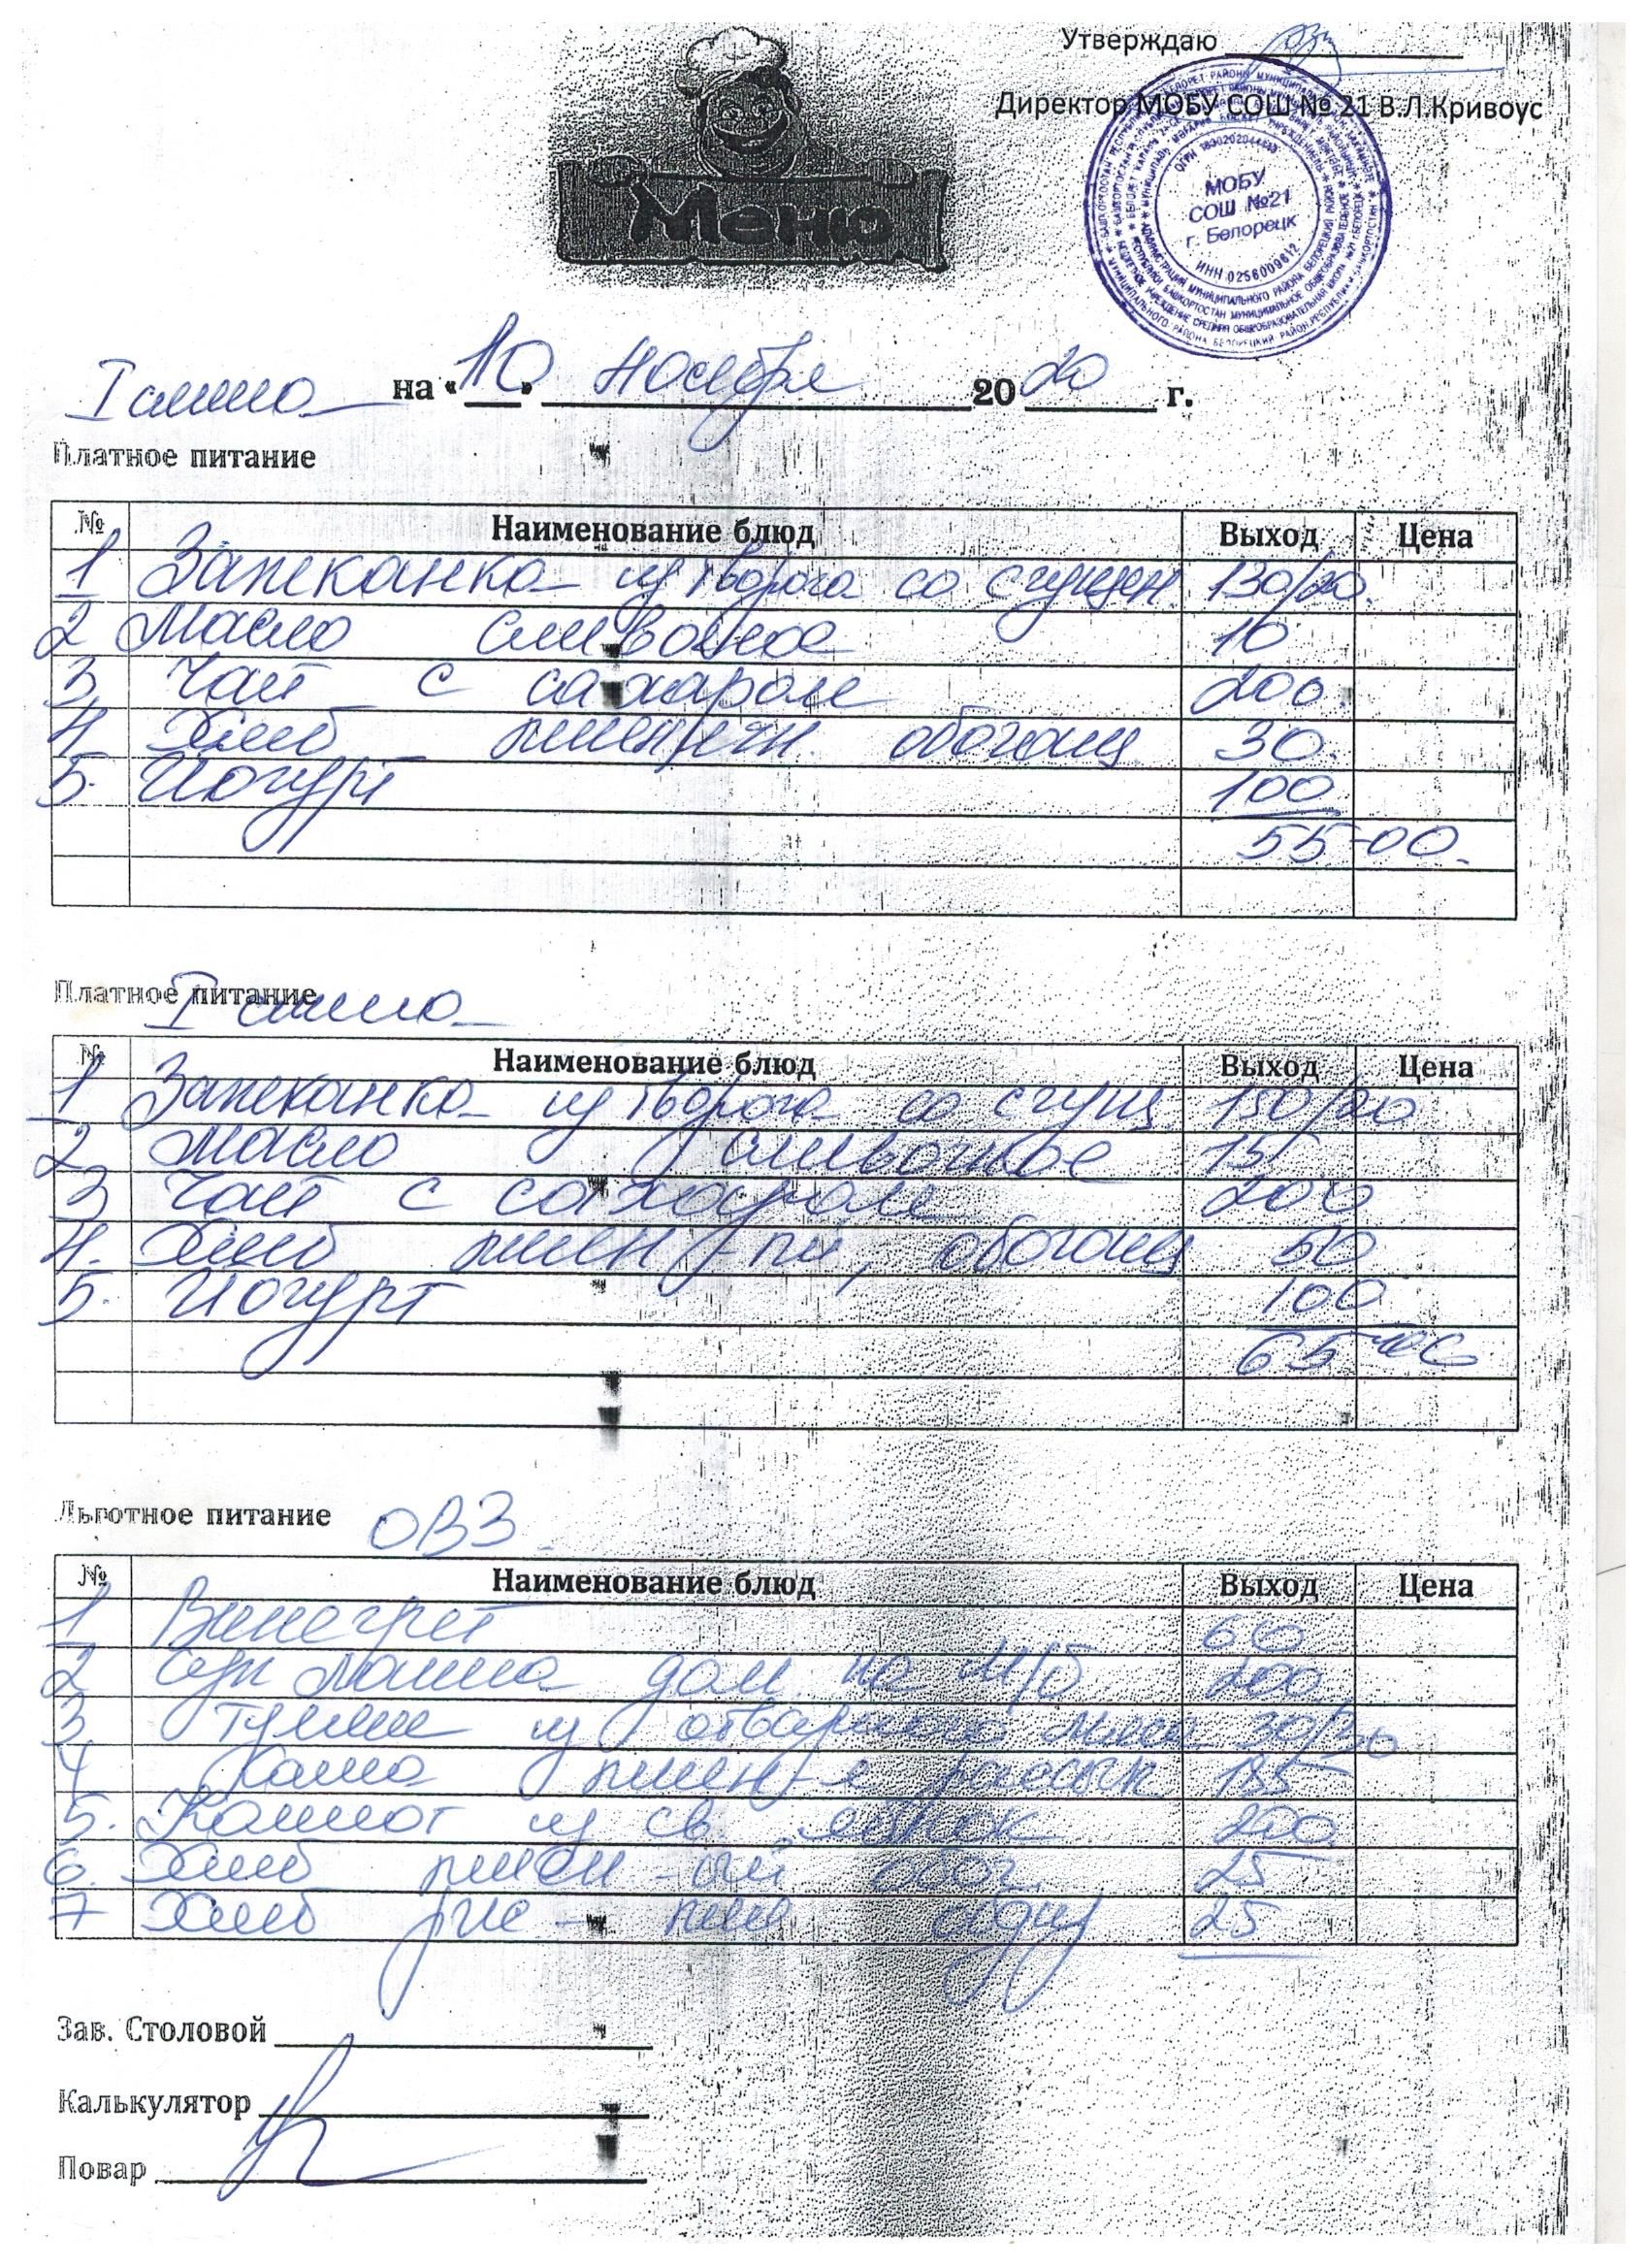 Утверждаю
Директор МОБУ СОШ № 21 В.Л.Кривоус
МОБУ
СОШ №21
г. Белорецк
ИНН 0256009612
Меню
I смена на «10» Ноября 2020 г.
Платное питание
№ Наименование блюд Выход Цена
1 Запеканка из творога со сгущен. 130/20.
2 Масло сливочное 10
3 Чай с сахаром 200.
4. Хлеб пшеничн. обогащ 30.
5. Йогурт 100
55-00.
Платное питание
I смена
№ Наименование блюд Выход Цена
1 Запеканка из творога со сгущ 150/20
2 Масло сливочное 15
3 Чай с сахаром 200
4. Хлеб пшен-ый, обогащ 50
5. Йогурт 100
65-00
Льготное питание ОВЗ.
№ Наименование блюд Выход Цена
1 Винегрет 60
2 Суп лапша дом на м/б 200
3 Гуляш из отварного мяса 30/30
4 Каша пшен-я рассып 185
5. Компот из св. яблок 200
6. Хлеб пшен-ый обог. 25
7 Хлеб рж-пш 25
Зав. Столовой
Калькулятор
Повар